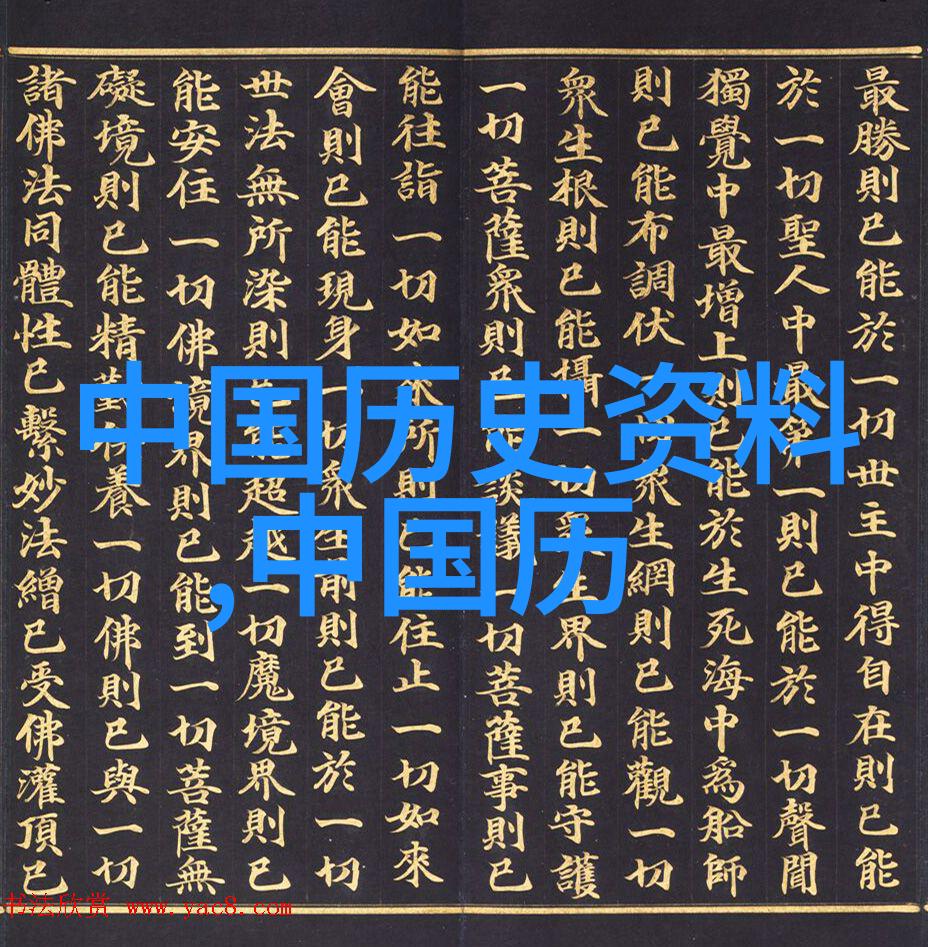 最勝則已能於一切世主中得自在則已能
於一切聖人中最第一則已能於一切聲聞
獨覺中最增上則已能於生死海中爲船師
則已能布調伏切眾生網則已能觀一切
眾生根則已能攝一切眾生界則已能守護
一切菩薩眾則已能談議一切菩薩事則已
能往詣一切如來所則已能住止一切如來
會則已能現身一切眾生前則已能於一切
世法無所染則已能超越一切魔境界則已
能安住一切佛境界則已能到一切菩薩無
礙境則已能精勤供養一切佛則已與一切
諸佛法同體性已繫妙法繒已受佛灌頂已
中国历史资料
,中国历
书法欣赏 www.yac8.com